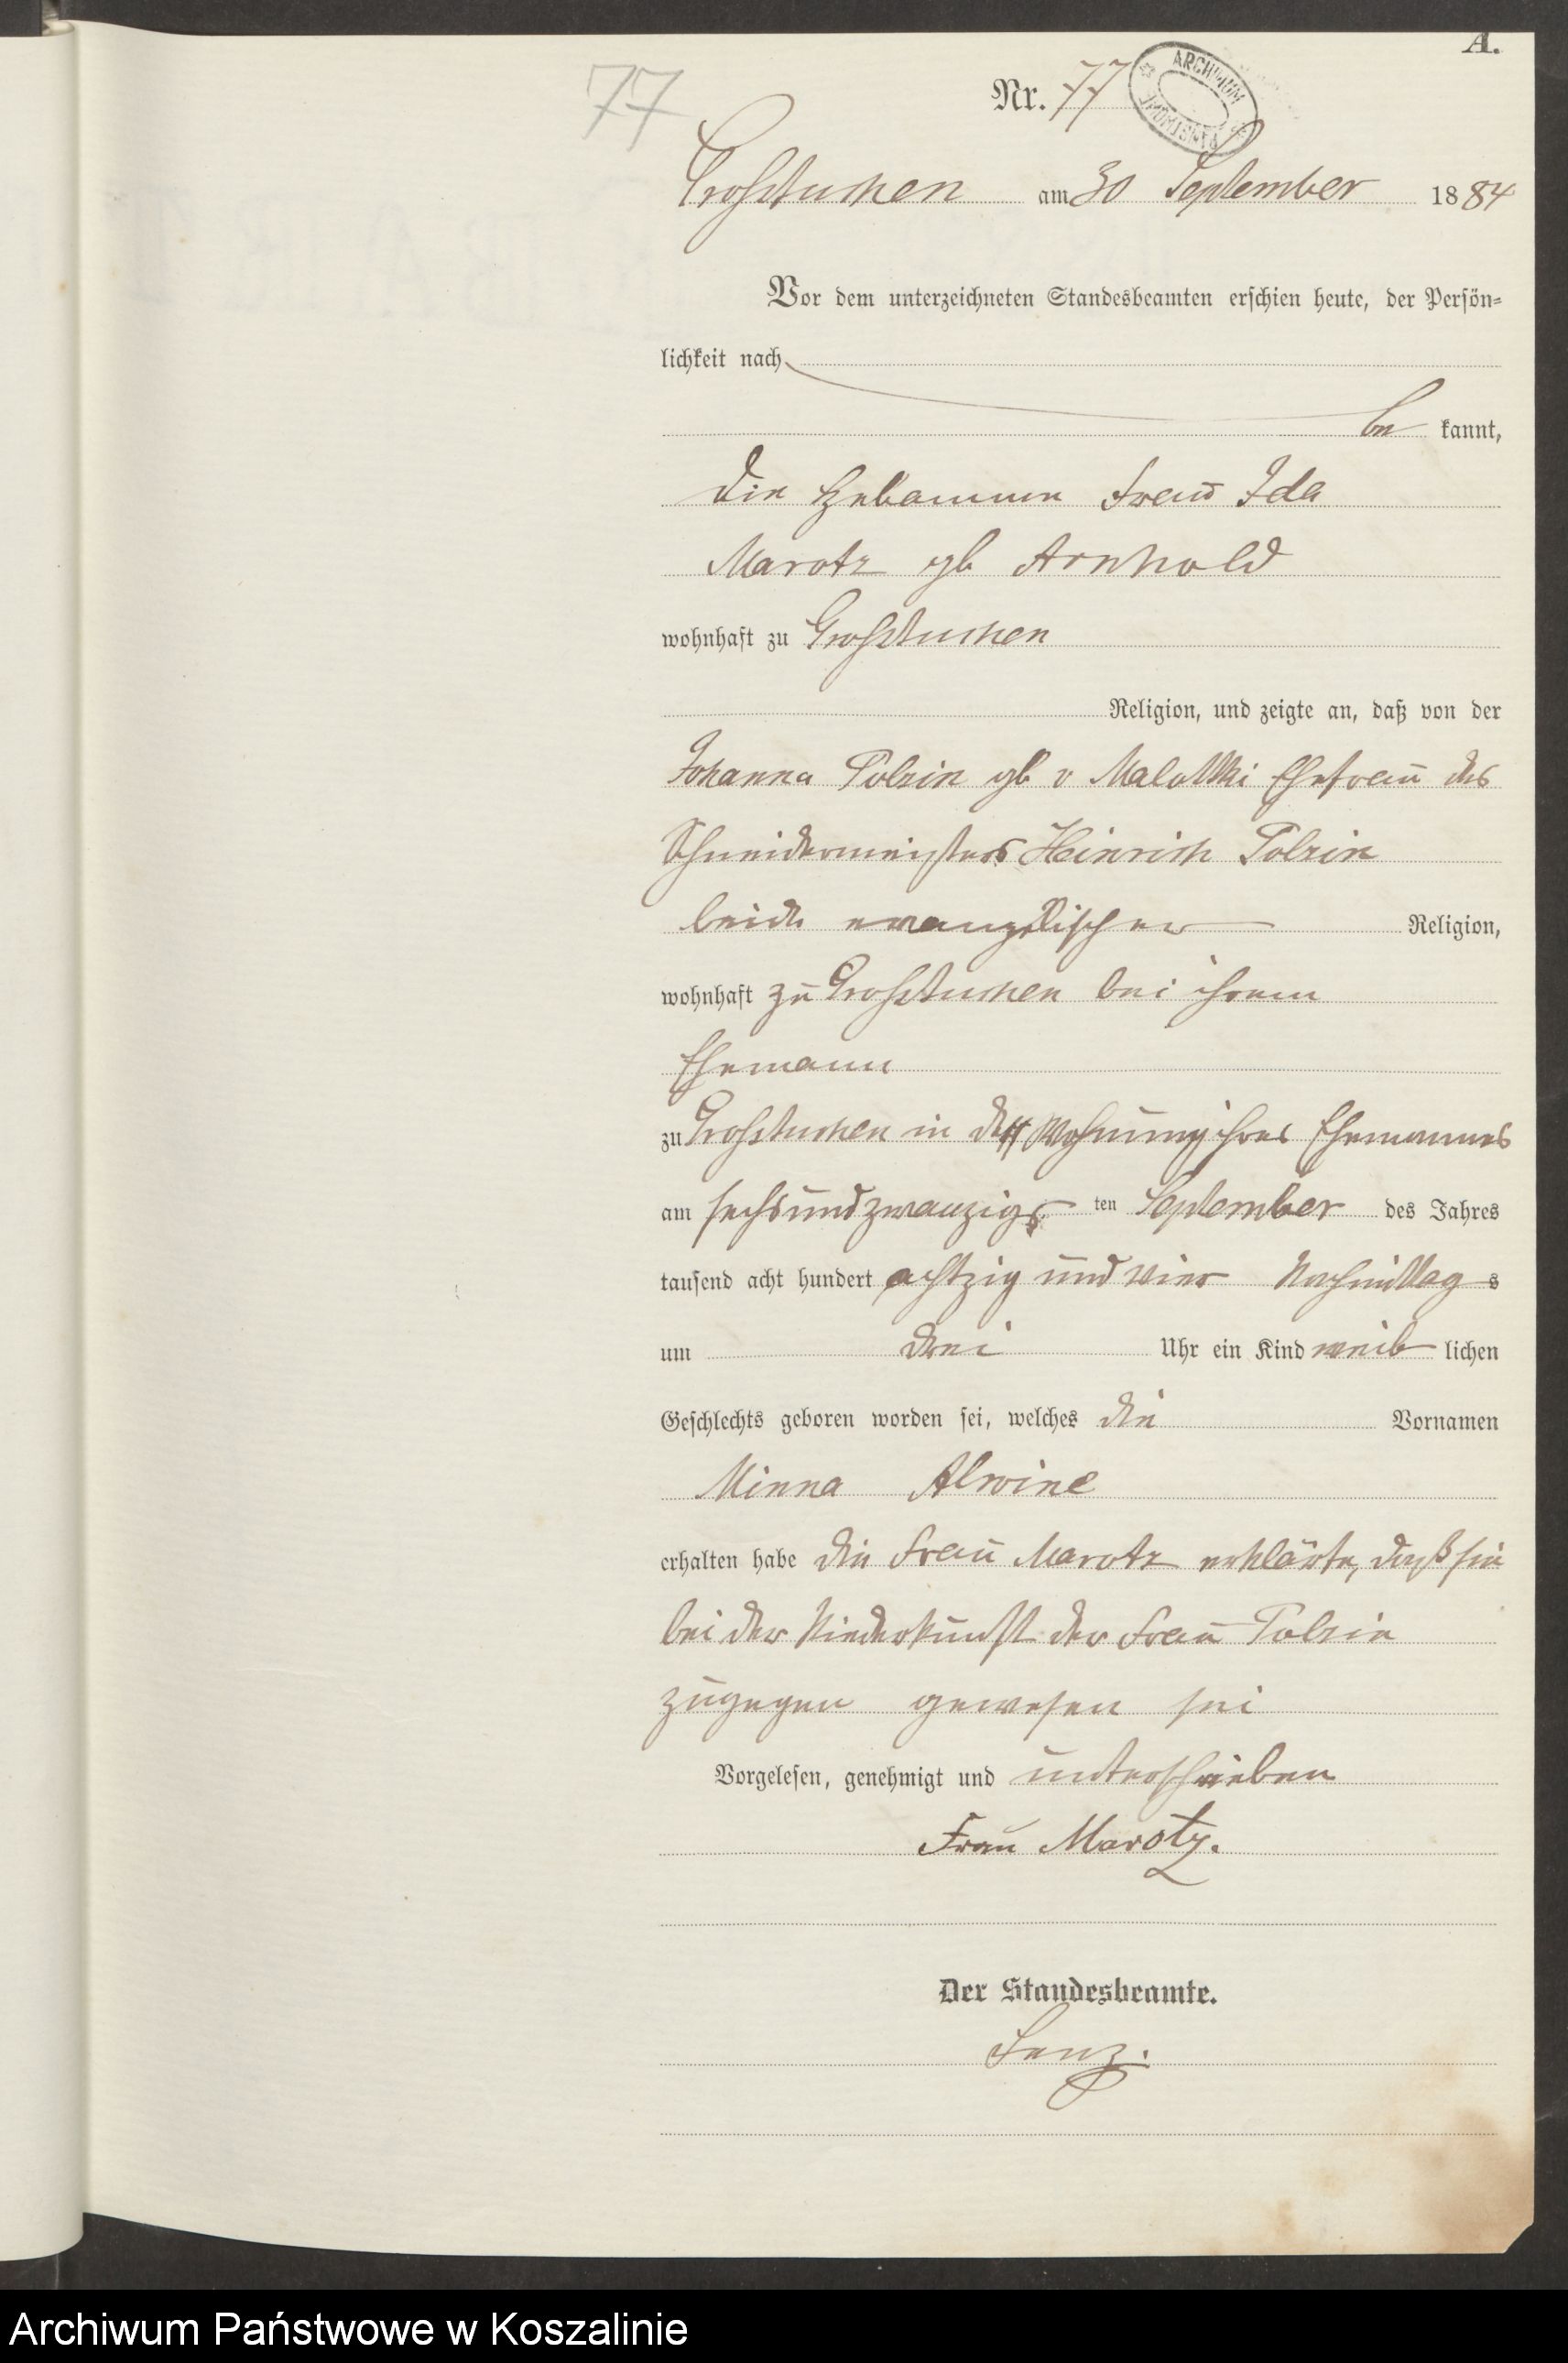 A.
77
Nr. 77
ARCHIWUM PAŃSTWOWE
Großtuchen am 30 September 1884
Vor dem unterzeichneten Standesbeamten erschien heute, der Persön=
lichkeit nach
be kannt,
die Hebamme Frau Ida
Marotz gb Arnhold
wohnhaft zu Großtuchen
Religion, und zeigte an, daß von der
Johanna Polzin gb v Malottki Ehefrau des
Schneidermeisters Heinrich Polzin
beide evangelischer Religion,
wohnhaft zu Großtuchen bei ihrem
Ehemann
zu Großtuchen in der Wohnung ihres Ehemannes
am sechsundzwanzigs ten September des Jahres
tausend acht hundert achtzig und vier Nachmittag s
um drei Uhr ein Kind weib lichen
Geschlechts geboren worden sei, welches die Vornamen
Minna Alwine
erhalten habe die Frau Marotz erklärte, daß sie
bei der Niederkunft der Frau Polzin
zugegen gewesen sei
Vorgelesen, genehmigt und unterschrieben
Frau Marotz.
Der Standesbeamte.
Lenz.
Archiwum Państwowe w Koszalinie